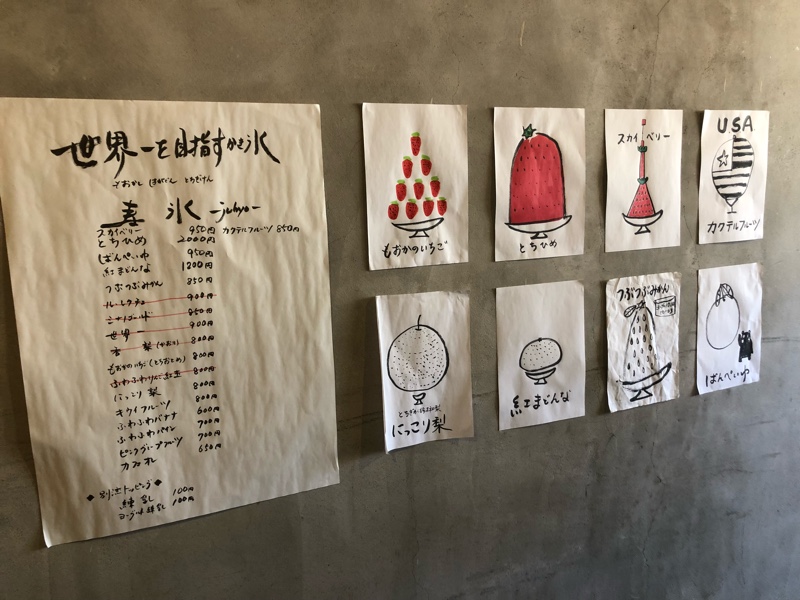 世界一を目指すかき氷
さおかし ほがじん とちぎけん
喜 氷 -juhyo-
スカイベリー 950円 カクテルフルーツ 850円
とちひめ 2000円
ばんぺいゆ 950円
紅まどんな 1200円
つぶつぶみかん 850円
ル・レクチェ 900円
シナノゴールド 850円
世界一 900円
梨(かおり) 800円
もおかのいちご(とちおとめ) 800円
ふわふわりんご紅玉 800円
にっこり梨 800円
キウイフルーツ 800円
ふわふわバナナ 600円
ふわふわパイン 700円
ピンクグレープフルーツ 700円
カフェオレ 650円
◆別注トッピング◆
練乳 100円
ヨーグルト味練乳 100円
もおかのいちご
とちひめ
スカイベリー
USA
カクテルフルーツ
にっこり梨
紅まどんな
つぶつぶみかん
ばんぺいゆ